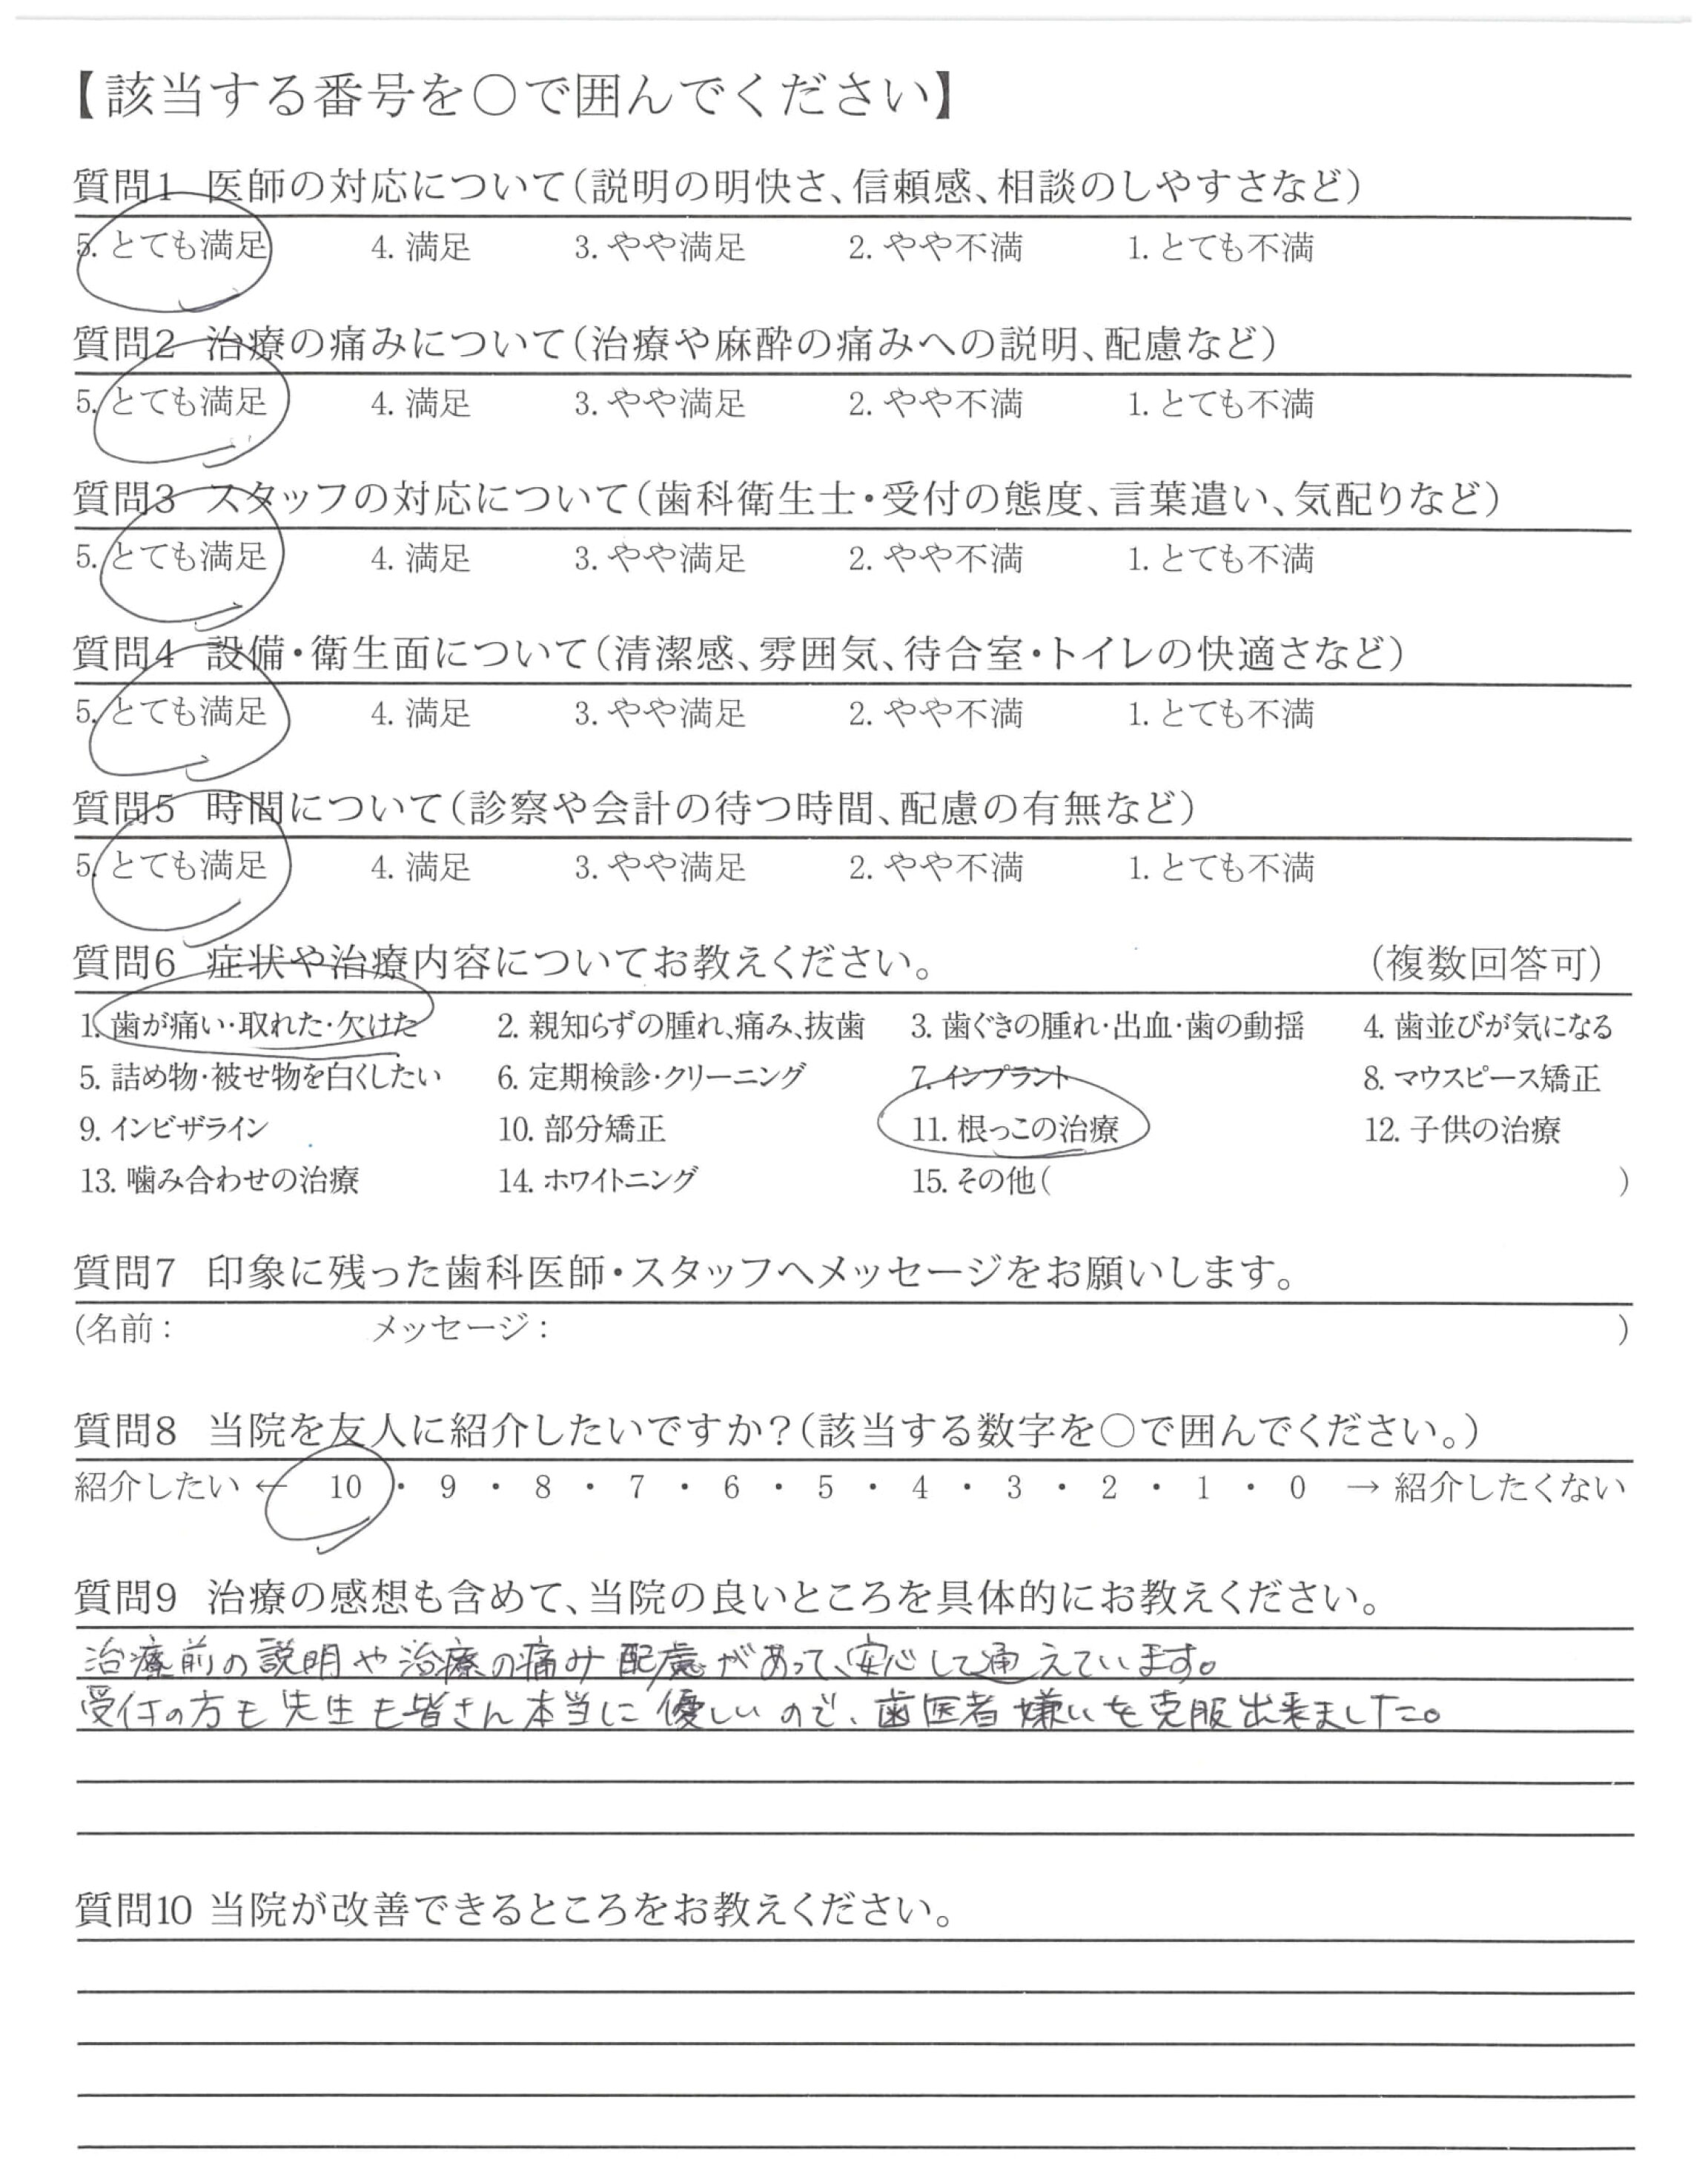 【該当する番号を○で囲んでください】
質問1 医師の対応について(説明の明快さ、信頼感、相談のしやすさなど)
5. とても満足 4. 満足 3. やや満足 2. やや不満 1. とても不満
質問2 治療の痛みについて(治療や麻酔の痛みへの説明、配慮など)
5. とても満足 4. 満足 3. やや満足 2. やや不満 1. とても不満
質問3 スタッフの対応について(歯科衛生士・受付の態度、言葉遣い、気配りなど)
5. とても満足 4. 満足 3. やや満足 2. やや不満 1. とても不満
質問4 設備・衛生面について(清潔感、雰囲気、待合室・トイレの快適さなど)
5. とても満足 4. 満足 3. やや満足 2. やや不満 1. とても不満
質問5 時間について(診察や会計の待つ時間、配慮の有無など)
5. とても満足 4. 満足 3. やや満足 2. やや不満 1. とても不満
質問6 症状や治療内容についてお教えください。 (複数回答可)
1. 歯が痛い・取れた・欠けた 2. 親知らずの腫れ、痛み、抜歯 3. 歯ぐきの腫れ・出血・歯の動揺 4. 歯並びが気になる
5. 詰め物・被せ物を白くしたい 6. 定期検診・クリーニング 7. インプラント 8. マウスピース矯正
9. インビザライン 10. 部分矯正 11. 根っこの治療 12. 子供の治療
13. 噛み合わせの治療 14. ホワイトニング 15. その他( )
質問7 印象に残った歯科医師・スタッフへメッセージをお願いします。
(名前: メッセージ: )
質問8 当院を友人に紹介したいですか?(該当する数字を○で囲んでください。)
紹介したい ← 10 ・ 9 ・ 8 ・ 7 ・ 6 ・ 5 ・ 4 ・ 3 ・ 2 ・ 1 ・ 0 → 紹介したくない
質問9 治療の感想も含めて、当院の良いところを具体的にお教えください。
治療前の説明や治療の痛み配慮があって、安心して通えています。
受付の方も先生も皆さん本当に優しいので、歯医者嫌いを克服出来ました。
質問10 当院が改善できるところをお教えください。